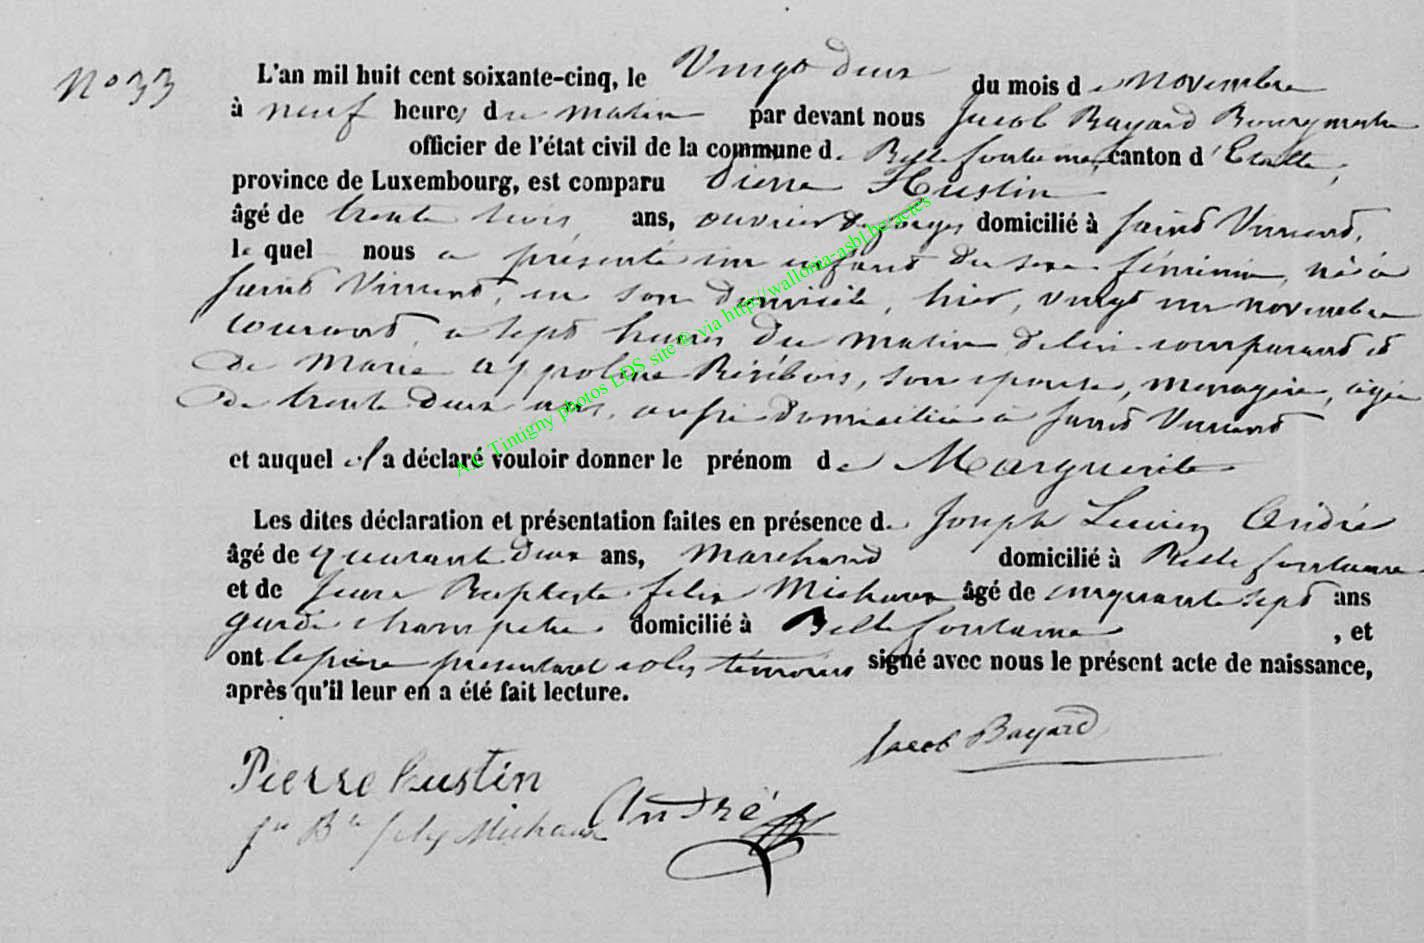 N° 33
L'an mil huit cent soixante-cinq, le Vingt deux du mois de novembre
à neuf heures du matin par devant nous Jacob Bayard Bourgmestre
officier de l'état civil de la commune de Bellefontaine, canton d'Etalle,
province de Luxembourg, est comparu Pierre Hustin
âgé de trente trois ans, ouvrier de forges domicilié à Saint Vincent,
le quel nous a présenté un enfant du sexe féminin, né à
Saint Vincent, en son domicile, hier, vingt un novembre
courant, a sept heures du matin de lui comparant et
de Marie Appoline Résibois, son épouse, menagère, agée
de trente deux ans, aussi domiciliée à Saint Vincent
et auquel il a déclaré vouloir donner le prénom de Marguerite
Les dites déclaration et présentation faites en présence de Joseph Lucien André
âgé de quarante deux ans, marchand domicilié à Bellefontaine
et de Jean Baptiste felix Michaux âgé de cinquante sept ans
garde champetre domicilié à Bellefontaine , et
ont le père presentant et les témoins signé avec nous le présent acte de naissance,
après qu'il leur en a été fait lecture.
Jacob Bayard
Pierre hustin
André
Jn Bte felix Michaux
AC Tintigny photos LDS site © via http://wallonia-asbl.be/actes